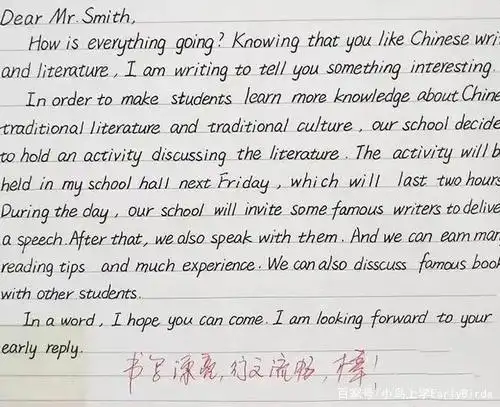 Dear Mr. Smith,
How is everything going? Knowing that you like Chinese wri
and literature, I am writing to tell you something interesting.
In order to make students learn more knowledge about Chine
traditional literature and traditional culture, our school decide
to hold an activity discussing the literature. The activity will b
held in my school hall next Friday, which will last two hours
During the day, our school will invite some famous writers to delive
a speech. After that, we also speak with them. And we can earn man
reading tips and much experience. We can also disscuss famous book
with other students.
In a word, I hope you can come. I am looking forward to your
early reply.
书写漂亮,行文流畅,棒!
百家号/小鸟上学EarlyBirds